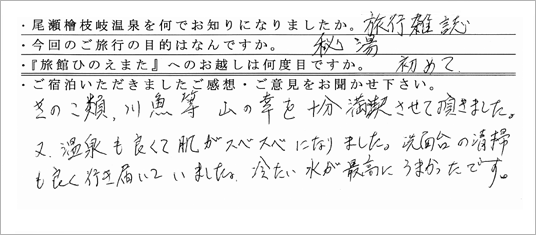 ・尾瀬檜枝岐温泉を何でお知りになりましたか。旅行雑誌
・今回のご旅行の目的はなんですか。 秘湯
・『旅館ひのえまた』へのお越しは何度目ですか。 初めて
・ご宿泊いただきましたご感想・ご意見をお聞かせ下さい。
きのこ類,川魚等 山の幸を十分満喫させて頂きました。
又、温泉も良くて肌がスベスベになりました。洗面台の清掃
も良く行き届いていました。冷たい水が最高にうまかったです。